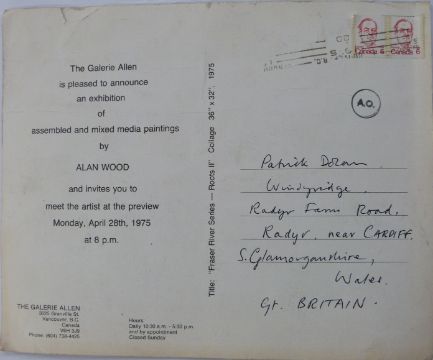 The Galerie Allen
is pleased to announce
an exhibition
of
assembled and mixed media paintings
by
ALAN WOOD
and invites you to
meet the artist at the preview
Monday, April 28th, 1975
at 8 p.m.
THE GALERIE ALLEN
3025 Granville St.
Vancouver, B.C.
Canada
V6H 3J9
Phone: (604) 738-4425
Hours:
Daily 10:30 a.m. - 5:30 p.m.
and by appointment
Closed Sunday
Title: "Fraser River Series — Roots II" Collage 36" x 32"; 1975
Canada 6
Canada 6
A.O.
Patrick Dolan
Windyridge.
Radyr Farm Road,
Radyr, near CARDIFF.
S. Glamorganshire,
Wales.
Gt. BRITAIN.